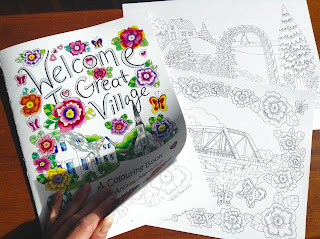 Welcome
To Great
Village
A Colouring Book